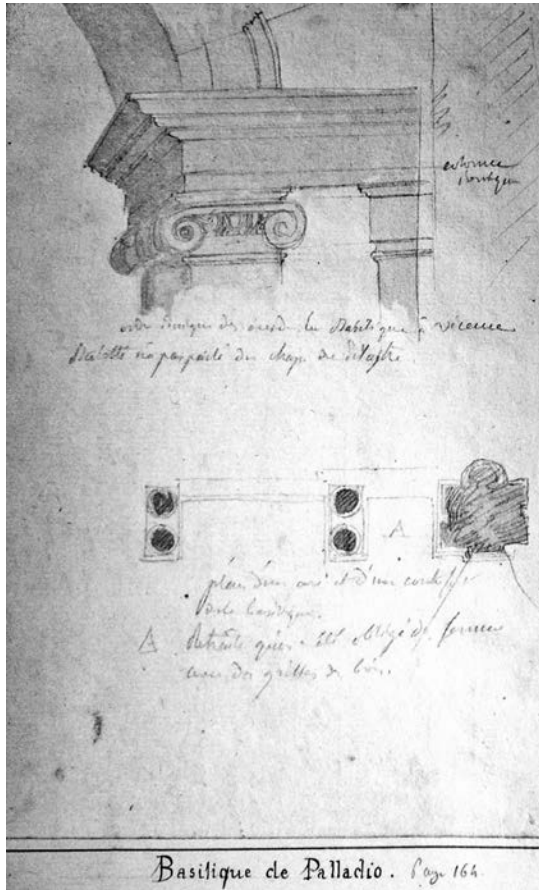 colonne
ordre ionique des arcs de la Basilique à Vicence
n'a pas parlé du chap. de pilastre.
A
plan d'un arc et d'un contrefort
de la basilique.
A Retraite qu'on a été obligé de fermer
avec des grilles de bois.
Basilique de Palladio. Page 164